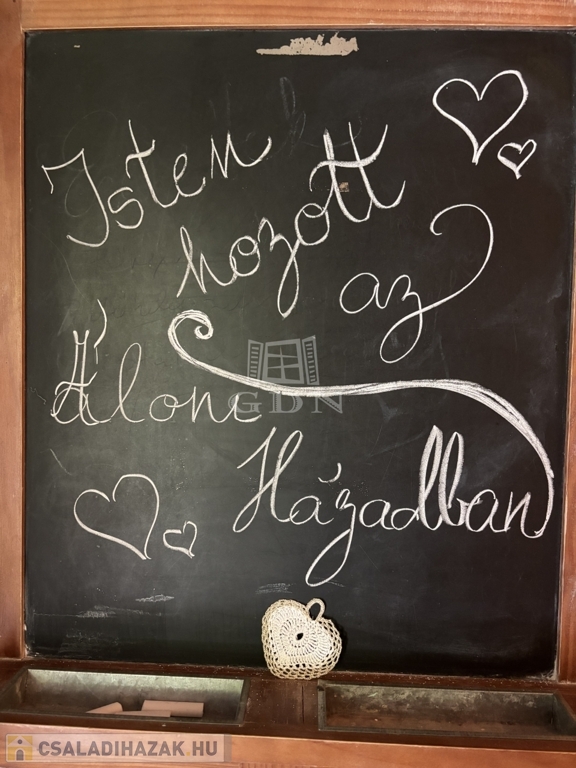 Isten
hozott
az
Álom
GDN
Házadban
CSALADIHAZAK.HU